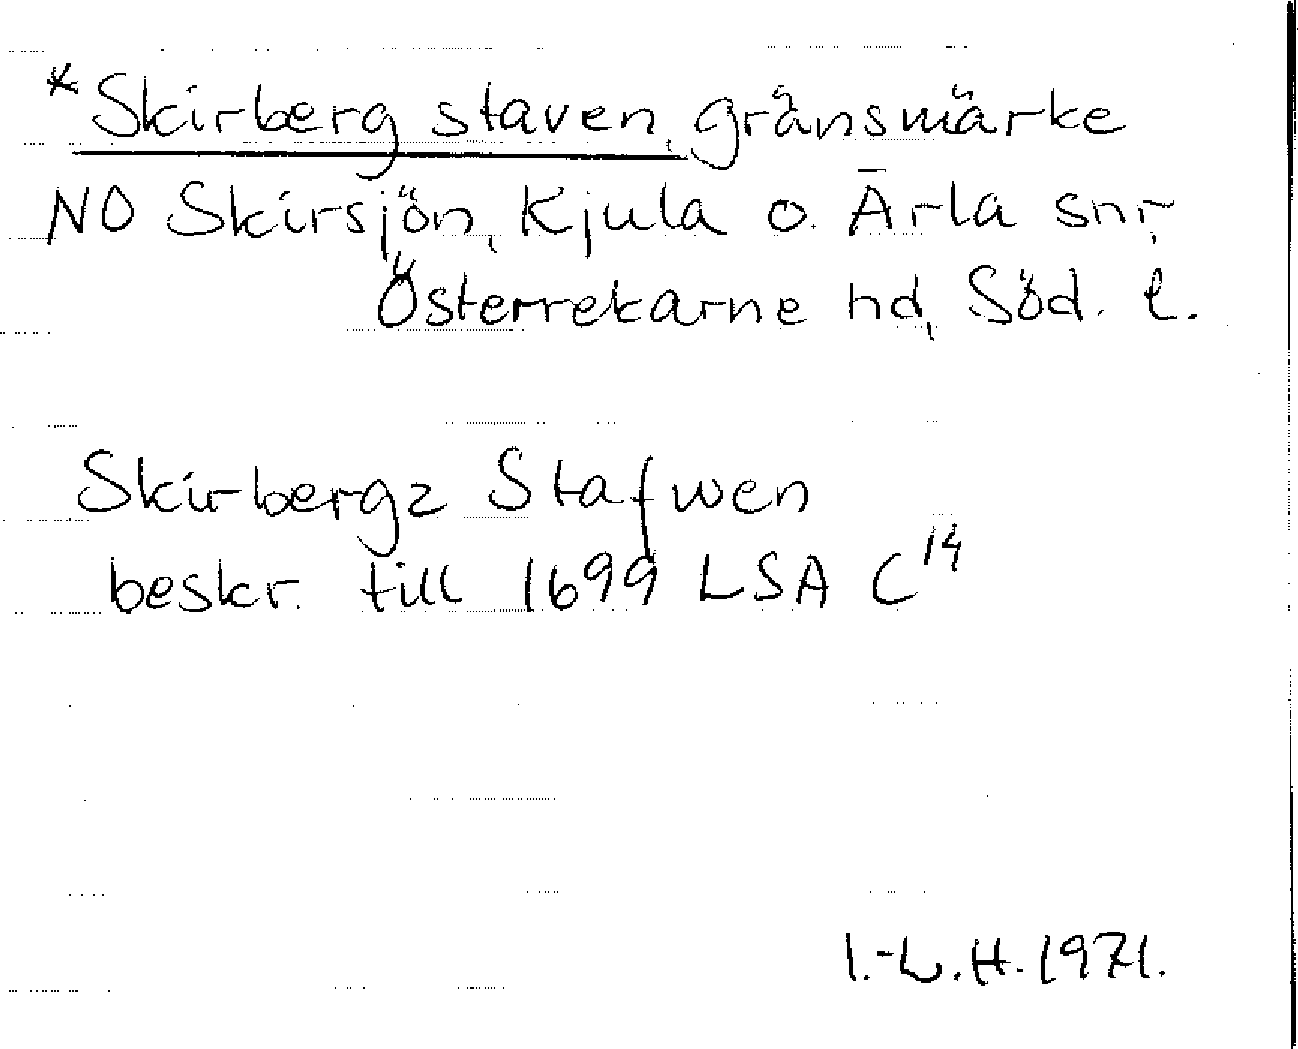 *Skirberg staven, gränsmärke
NO Skirsjön, Kjula o. Ärla snr,
Österrekarne hd, Söd. l.
Skirbergz Stafwen
beskr. till 1699 LSA C14
I.-L.H. 1971.